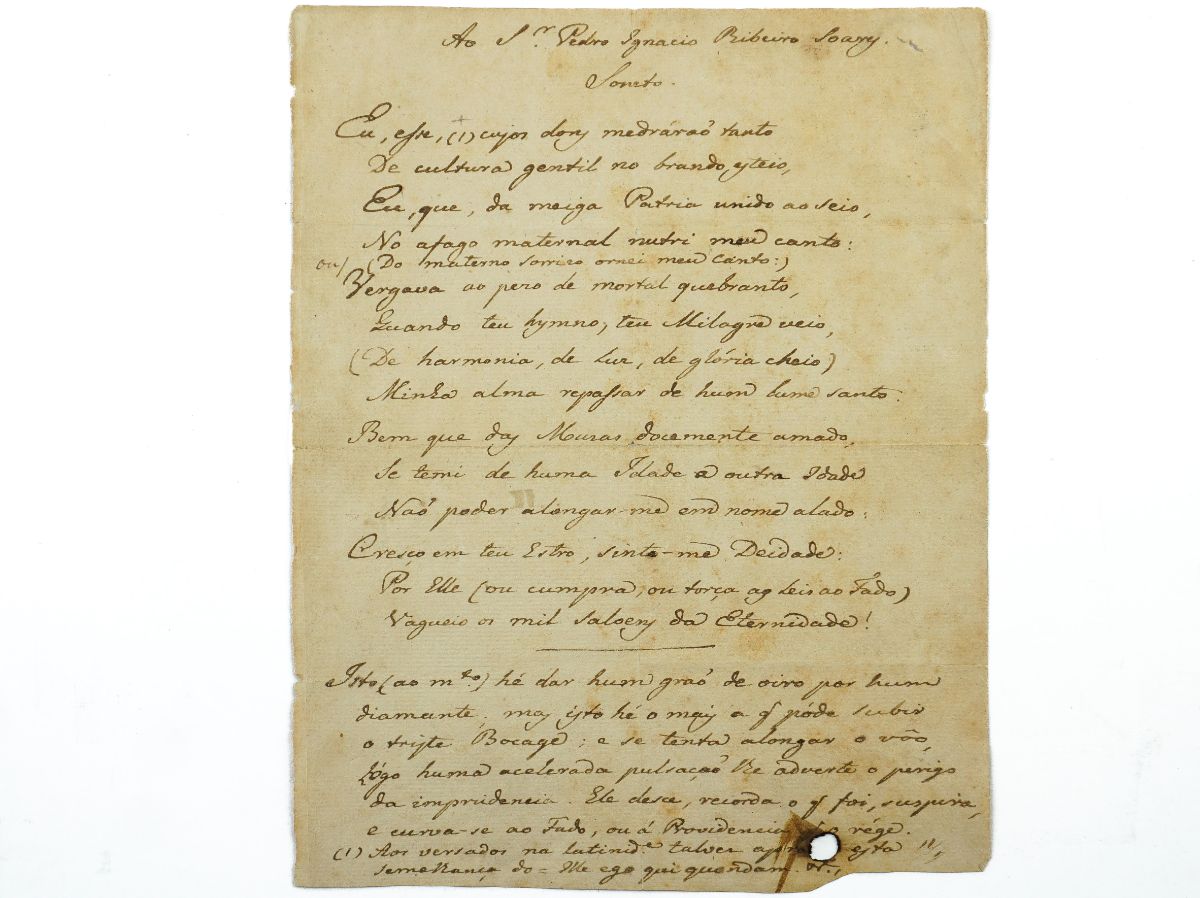 Ao S.r Pedro Ignacio Ribeiro Soares.
Soneto.
Eu, esse, (1) cujos dons medráraõ tanto
De cultura gentil no brando esteio,
Eu, que, da meiga Patria unido ao seio,
No afago maternal nutri meu canto:
ou/ (Do materno sorrizo ornei meu canto:)
Vergava ao pezo de mortal quebranto,
Quando teu hymno, teu Milagre veio,
(De harmonia, de Luz, de glória cheio)
Minha alma repassar de hum lume santo.
Bem que das Muzas docemente amado,
Se temi de huma Idade a outra Idade
Naõ poder alongar-me em nome alado:
Cresço em teu Estro; sinto-me Deidade:
Por Elle (ou cumpra, ou torça as Leis ao Fado)
Vagueio os mil saloens da Eternidade!
Isto (ao m.to) hé dar hum graõ de oiro por hum
diamante; mas isto hé o mais a q póde subir
o triste Bocage; e se tenta alongar o vôo,
lógo huma acelerada pulsaçaõ lhe adverte o perigo
da imprudencia. Ele desce, recorda o q foi, suspira,
e curva-se ao Fado, ou á Providencia rége.
(1) Aos versados na latinid.e talvez esta
semelhança do = Ille ego qui quondam. &.,